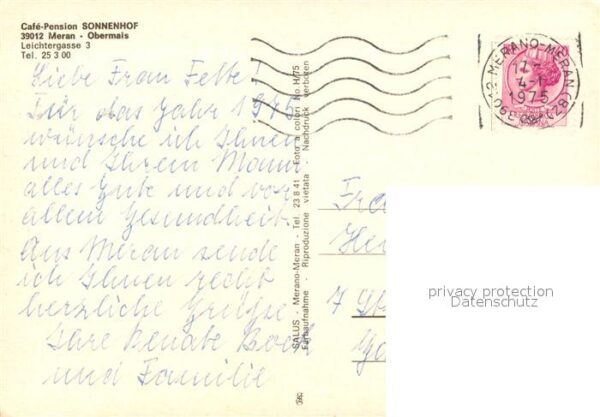 Café-Pension SONNENHOF
39012 Meran - Obermais
Leichtergasse 3
Tel. 25 3 00
Liebe Frau Fette!
Für das Jahr 1975
wünsche ich Ihnen
und Ihrem Mann
alles Gute und vor
allem Gesundheit.
Aus Meran sende
ich Ihnen recht
herzliche Grüße
Ihre Renate Bock
und Familie
SALUS - Merano-Meran - Tel. 23 8 41 - Foto a colori No. H/75
Farbaufnahme - Riproduzione vietata - Nachdruck verboten
39012 MERANO-MERAN (BZ)
4-1
1975
Frau
7
privacy protection
Datenschutz